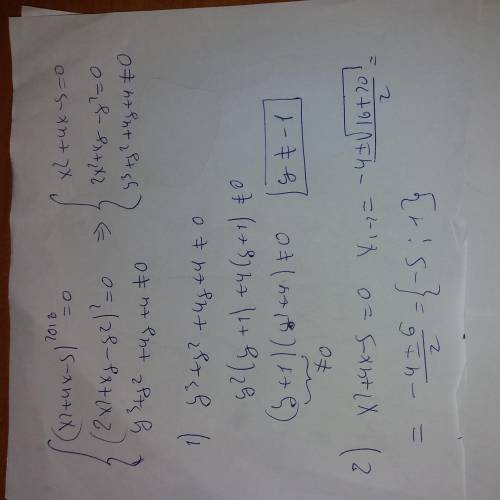 (x²+4x-5)²⁰¹⁸=0
(2x²+xy-y²)²=0
y³+y²+4y+4≠0
⇒
x²+4x-5=0
2x²+xy-y²=0
y³+y²+4y+4≠0
1) y³+y²+4y+4≠0
y²(y+1)+4(y+1)≠0
(y+1)(y²+4)≠0
≠0
y≠-1
2) x²+4x-5=0 x₁,₂=(-4±√(16+20))/2=
=(-4±6)/2={-5;1}